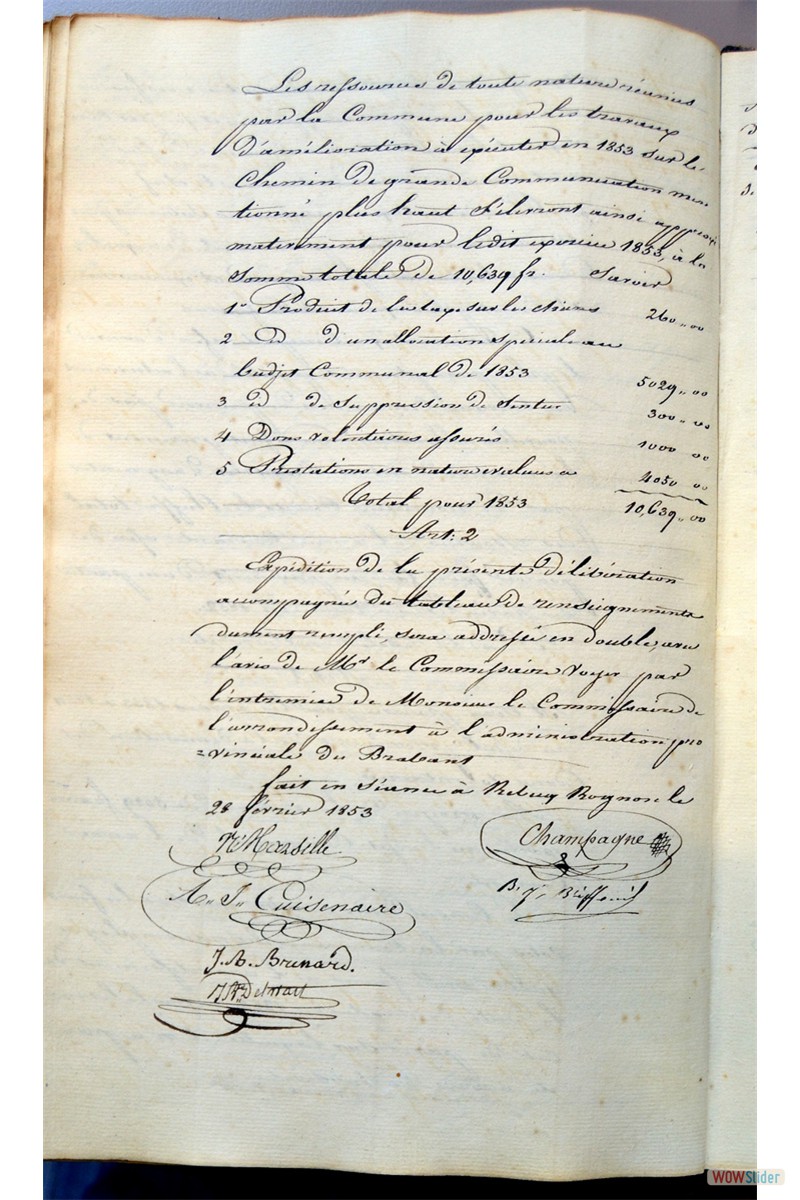 Les ressources de toute nature réunies
par la Commune pour les travaux
d'amélioration à exécuter en 1853 sur le
Chemin de grande Communication men
tionné plus haut s'éleront ainsi approxi
mativement pour ledit exercice 1853, à la
Somme totale de 10,639 fr. Savoir
1° Produit de la taxe sur les chiens 260 ,, 00
2 id d'un allocation spéciale au
budjet Communal de 1853 5029 ,, 00
3 id de Suppression de Sentier 300 ,, 00
4 Dons volontaires assurés 1000 00
5 Prestations en nature évalués à 4050 00
Total pour 1853 10,639 ,, 00
Art: 2
Expédition de la présente délibération
accompagnée du tableau de renseignements
dument rempli, sera addressée en double, avec
l'avis de Mr le Commissaire Voyer par
l'entremise de Monsieur le Commissaire de
l'arrondissement à l'administration pro
=vinciale du Brabant
fait en Séance à Rebecq Rognon le
28 février 1853
Marsille
Champagne
A. J. Cuisenaire
B. J.
J. B. Brenard.